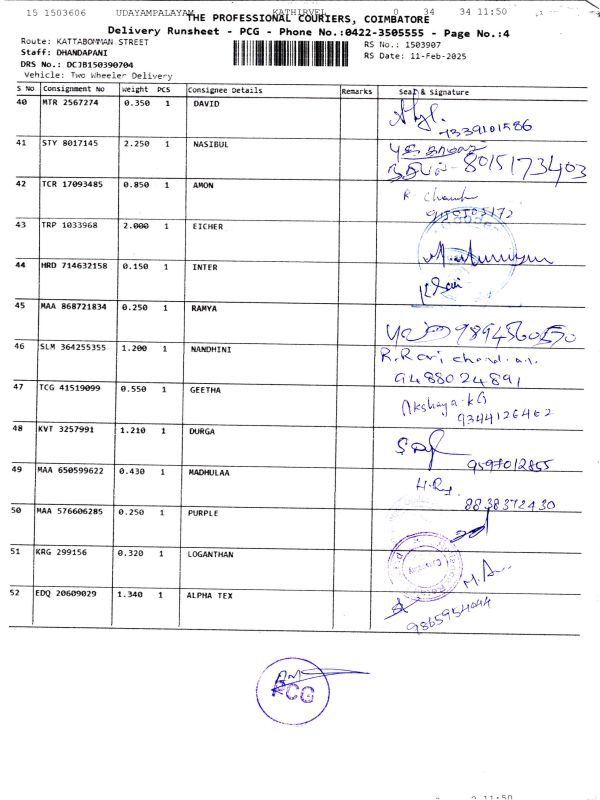 15 1503606 UDAYAMPALAYAM KATHIRVEL 0 34 34 11:50
THE PROFESSIONAL COURIERS, COIMBATORE
Delivery Runsheet - PCG - Phone No.:0422-3505555 - Page No.:4
Route: KATTABOMMAN STREET
RS No.: 1503907
Staff: DHANDAPANI
RS Date: 11-Feb-2025
DRS No.: DCJB150390704
Vehicle: Two Wheeler Delivery
S No Consignment No Weight PCS Consignee Details Remarks Seal & Signature
40 MTR 2567274 0.350 1 DAVID
7339101586
41 STY 8017145 2.250 1 NASIBUL
8015173403
42 TCR 17093485 0.850 1 AMON
43 TRP 1033968 2.000 1 EICHER
44 HRD 714632158 0.150 1 INTER
45 MAA 868721834 0.250 1 RAMYA
46 SLM 364255355 1.200 1 NANDHINI
R. Ravi chand
9488024891
47 TCG 41519099 0.550 1 GEETHA
Akshaya.KG
9344126462
48 KVT 3257991 1.210 1 DURGA
9597012855
49 MAA 650599622 0.430 1 MADHULAA
8838372430
50 MAA 576606285 0.250 1 PURPLE
51 KRG 299156 0.320 1 LOGANTHAN
52 EDQ 20609029 1.340 1 ALPHA TEX
9865954044
PCG
2 11:50